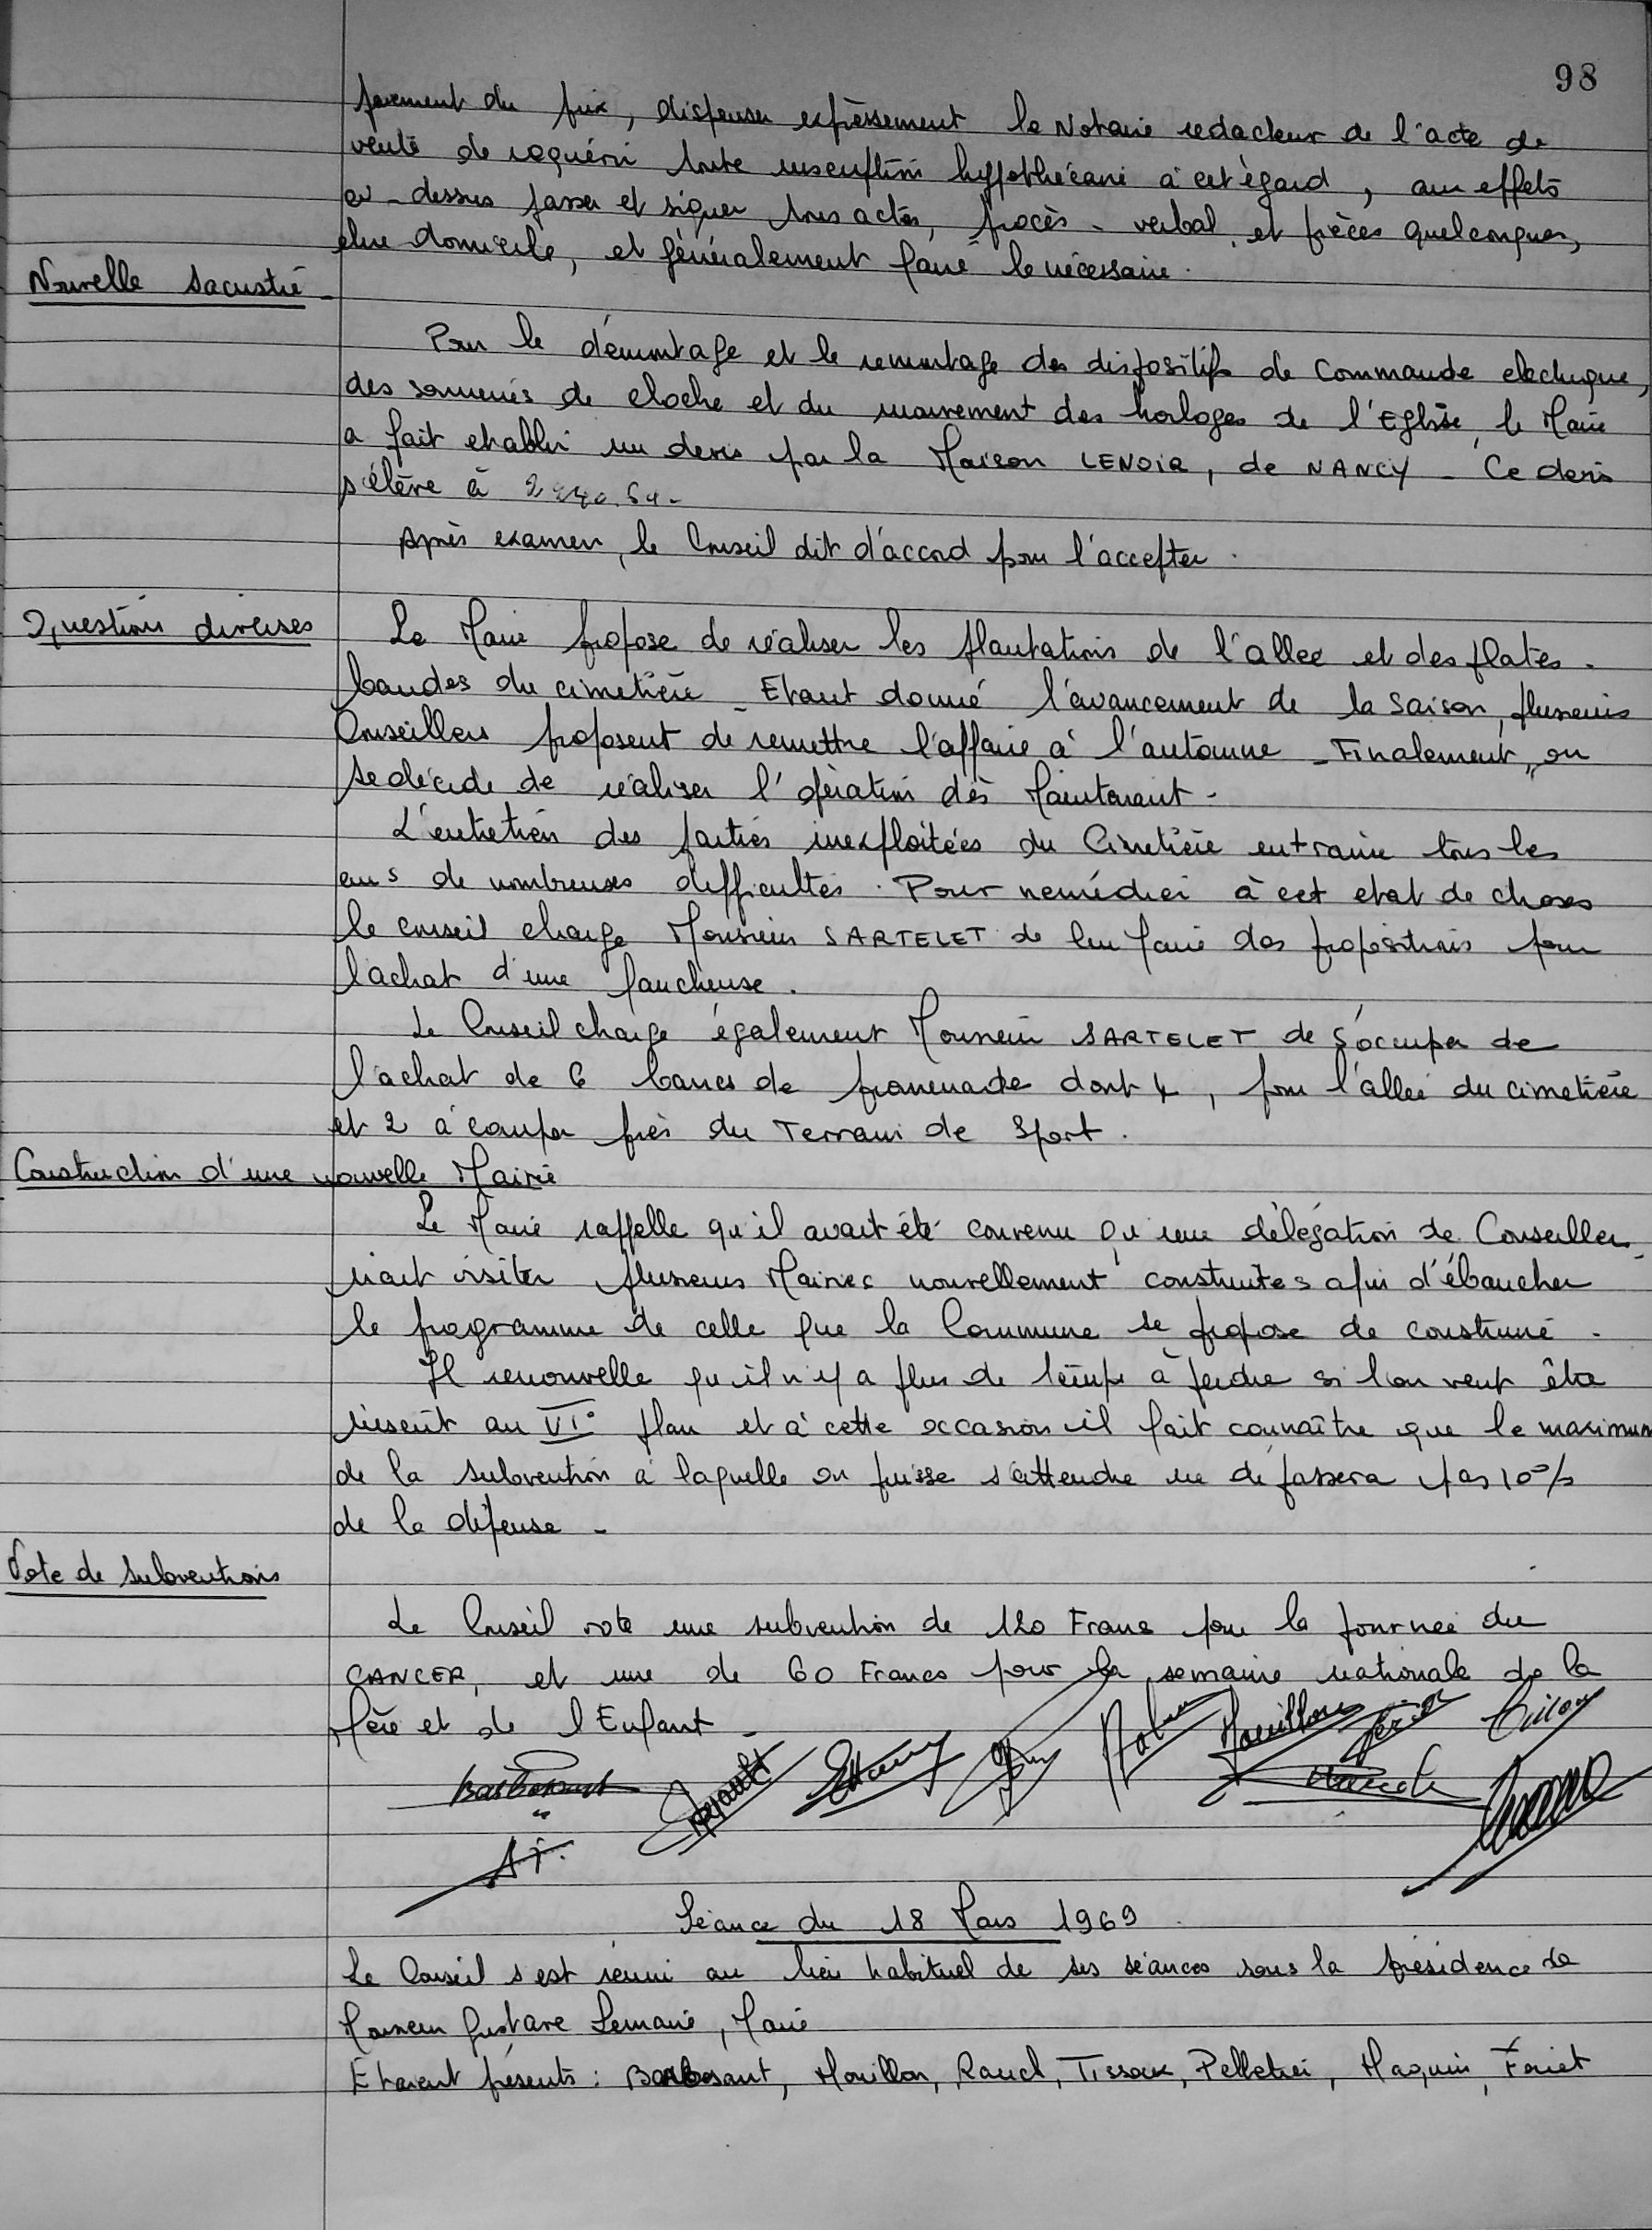 98
payement du prix, dispenser expréssement le Notaire redacteur de l'acte de
vente de requérir toute inscription hyppothécaire à cet égard, aux effets
ci-dessus passer et signer tous actes, procès-verbal et pièces quelconques,
elire domicile, et généralement faire le nécessaire.
Nouvelle sacristie
Pour le démontage et le remontage des dispositifs de Commande electrique,
des sonneries de cloche et du mouvement des horloges de l'Eglise, le Maire
a fait etablir un devis par la Maison LENOIR, de NANCY - Ce devis
s'élève à
Après examen, le Conseil dit d'accord pour l'accepter.
Questions diverses
Le Maire propose de réaliser les plantations de l'allee et des plates-
bandes du cimetière - Etant donné l'avancement de la saison, plusieurs
Conseillers proposent de remettre l'affaire à l'automne - Finalement, on
se décide de réaliser l'opération dès Maintenant -
L'entretien des parties inexploitées du Cimetière entraine tous les
ans de nombreuses difficultés. Pour remédier à cet etat de choses
le conseil charge Monsieur SARTELET de leur faire des propositions pour
l'achat d'une faucheuse.
Le Conseil charge également Monsieur SARTELET de s'occuper de
l'achat de 6 bancs de promenade dont 4, pour l'allée du cimetière
et 2 à camper près du Terrain de Sport.
Construction d'une nouvelle Mairie
Le Maire rappelle qu'il avait été convenu qu'une délégation de Conseillers
irait visiter plusieurs Mairies nouvellement construites afin d'ébaucher
le programme de celle que la Commune se propose de construire.
Il renouvelle qu'il n'y a plus de temps à perdre si l'on veut être
inscrit au VI° plan et à cette occasion il fait connaître que le maximum
de la subvention à laquelle on puisse s'attendre ne depassera pas 10%
de la dépense -
Vote de subventions
Le Conseil vote une subvention de 120 Francs pour la journée du
CANCER, et une de 60 Francs pour la semaine nationale de la
Mère et de l'Enfant -
Séance du 18 Mars 1969.
Le Conseil s'est réuni au lieu habituel de ses séances sous la présidence de
Monsieur Gustave Lemaire, Maire
Etaient présents : Barbosant, Mouillon, Rauch, Tissoux, Pelletier, Maquin, Feriet